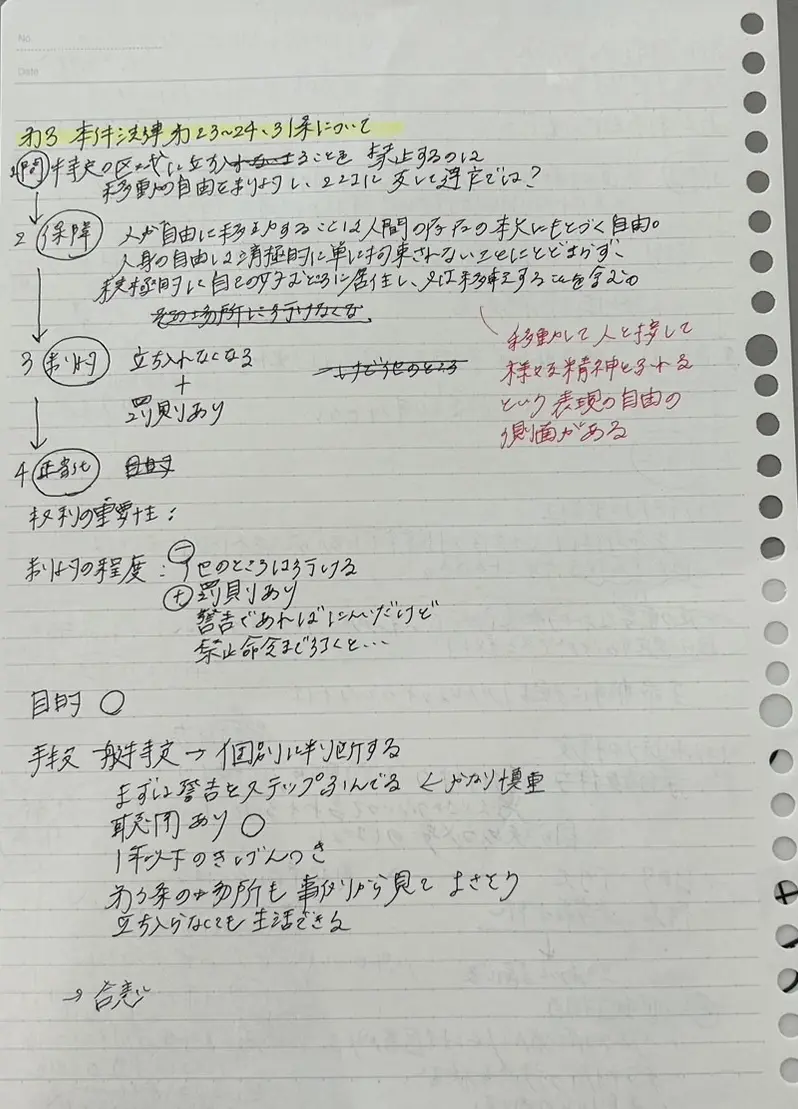 No.
Date
第3 本件法律第23~24、31条について
1 問 特定の区域に立ち入ることを禁止するのは
移動の自由を制約し、22Iに反して違憲では?
2 保障 人が自由に移動することは人間の存在の本質にもとづく自由。
人身の自由は消極的に単に拘束されないことにとどまらず、
積極的に自己の好むところに居住し、又は移転することを含む。
その場所に行けなくな
移動して人と接して
様々な精神とふれる
という表現の自由の
側面がある
3 制約 立ち入れなくなる
+
罰則あり
4 正当化 目的
権利の重要性:
制約の程度: ⊖ 他のところは行ける
⊕ 罰則あり
警告であればにんいだけど
禁止命令まで行くと…
目的 ○
手段 一般手段→個別に判断する
まずは警告とステップふんでる ← かなり慎重
聴聞あり ○
1年以下のきげんつき
の場所も事例から見て
立ち入らなくても生活できる
→ 合憲